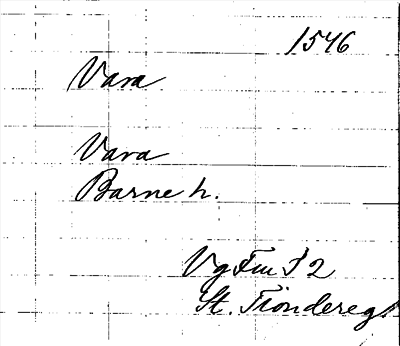 1546
Vara
Vara
Barne h.
Vg Fru S 2
St. Tionderegr